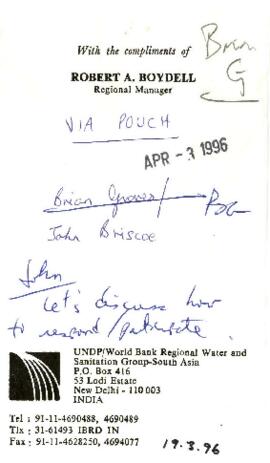 With the compliments of
Brian
G
ROBERT A. BOYDELL
Regional Manager
VIA POUCH
APR - 3 1996
Brian Grover/
John Briscoe
John
Let's discuss how
to respond/participate.
UNDP/World Bank Regional Water and
Sanitation Group-South Asia
P.O. Box 416
53 Lodi Estate
New Delhi - 110 003
INDIA
Tel : 91-11-4690488, 4690489
Tlx : 31-61493 IBRD IN
Fax : 91-11-4628250, 4694077
19.3.96